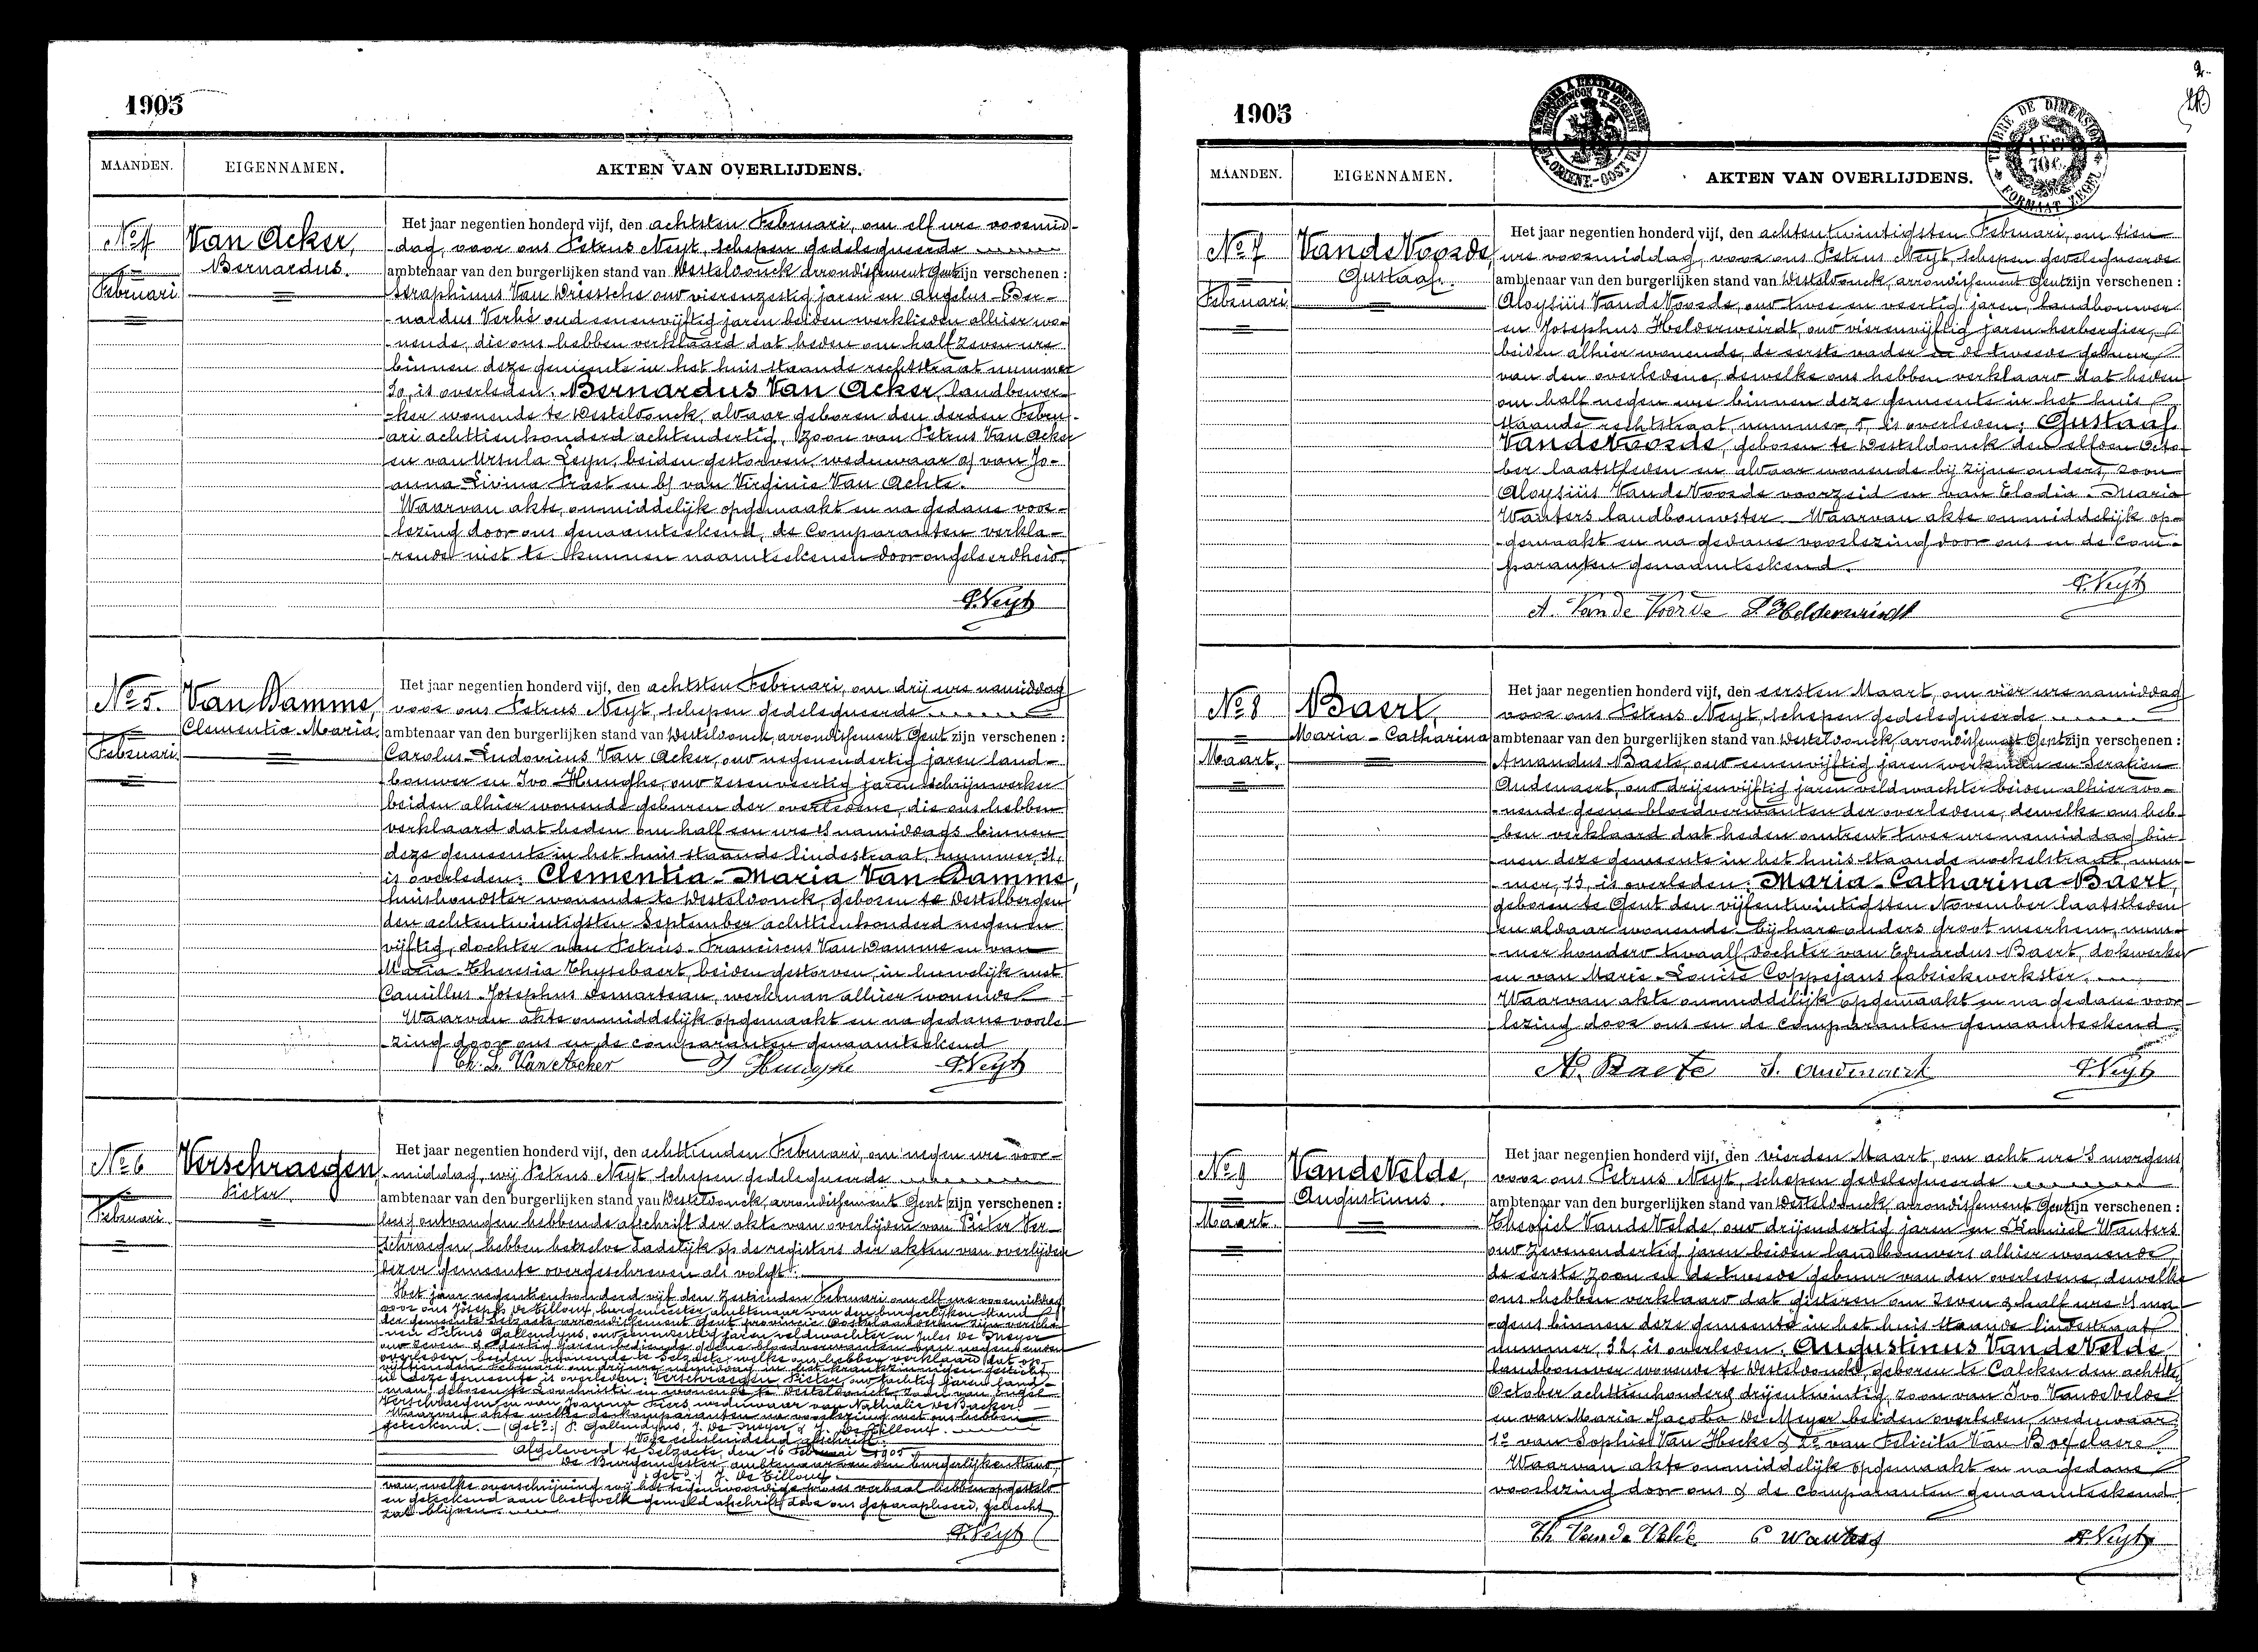 1905
MAANDEN. EIGENNAMEN. AKTEN VAN OVERLIJDENS.
No 4
Februari
Van Acker,
Bernardus.
Het jaar negentien honderd vijf, den achtsten Februari, om elf ure voormid-
dag, voor ons Petrus Neyt, schepen gedelegueerde
ambtenaar van den burgerlijken stand van Desteldonck arrondissement Gent zijn verschenen :
Seraphinus Van Driessche oud vierenzestig jaren en Angelus-Ber-
nardus Verhé oud eenenvijftig jaren beiden werklieden alhier wo-
nende, die ons hebben verklaard dat heden om half zeven ure
binnen deze gemeente in het huis staande rechtstraat nummer
30, is overleden: Bernardus Van Acker, landbouwer-
ker wonende te Desteldonck, aldaar geboren den derden Febru-
ari achttienhonderd achtendertig, zoon van Petrus Van Acker
en van Ursula Leyn, beiden gestorven, weduwaar a) van Jo-
anna-Livina Praet en b) van Virginie Van Achte.
Waarvan akte, onmiddelijk opgemaakt en na gedane voor-
lezing door ons genaamteekend, de comparanten verkla-
rende niet te kunnen naamteekenen door ongeleerdheid.
P. Neyt
No 5.
Februari
Van Damme,
Clementia-Maria.
Het jaar negentien honderd vijf, den achtsten Februari, om drij ure namiddag
voor ons Petrus Neyt, schepen gedelegueerde
ambtenaar van den burgerlijken stand van Desteldonck, arrondissement Gent zijn verschenen :
Carolus-Ludovicus Van Acker, oud negenendertig jaren land-
bouwer en Ivo Huughe, oud zesenveertig jaren schrijnwerker
beiden alhier wonende geburen der overledene, die ons hebben
verklaard dat heden om half een ure 's namiddags binnen
deze gemeente in het huis staande lindestraat, nummer, 31,
is overleden: Clementia-Maria Van Damme,
huishoudster wonende te Desteldonck, geboren te Destelbergen
den achtentwintigsten September achttienhonderd negenen
vijftig, dochter van Petrus-Franciscus Van Damme en van
Maria-Theresia Thysebaert, beiden gestorven, in huwelijk met
Camillus-Josephus Demarteau, werkman alhier wonende
Waarvan akte onmiddelijk opgemaakt en na gedane voorle-
zing door ons en de comparanten genaamteekend
Ch. L. Van Acker P. Neyt
No 6
Februari
Verschraegen,
Pieter.
Het jaar negentien honderd vijf, den achttienden Februari, om negen ure voor-
middag, wij Petrus Neyt schepen gedelegueerde
ambtenaar van den burgerlijken stand van Desteldonck, arrondissement Gent zijn verschenen :
lees: ontvangen hebbende afschrift der akte van overlijden van Pieter Ver-
schraegen, hebben hetzelve dadelijk op de registers der akten van overlijden
dezer gemeente overgeschreven als volgt:
Het jaar negentienhonderd vijf den zestienden Februari om elf ure voormiddag
voor ons Joseph De Tilloux, burgemeester ambtenaar van den burgerlijken stand
der gemeente Selzaete arrondissement Gent provincie Oostvlaanderen zijn versche-
nen Petrus Gallendyns, veldwachter en Jules De Meyer
oud zeven & dertig jaren bediende geene bloedverwanten van nagenoemden
overleden, beiden wonende te Selzaete, welke ons hebben verklaard dat op
vijftienden Februari om drij ure namiddag in het krankzinnigen gesticht
in deze gemeente is overleden: Verschraegen Pieter, oud tachtig jaren land-
man, geboren te Loochristi en wonende te Desteldonck, zoon van
Verschraegen en van Joanna Fiers weduwaar van Nathalie De Backer.
Waarvan akte welke de komparanten na voorlezing met ons hebben
geteekend. (Get.) P. Gallendyns, J. De Meyer & J. De Tilloux.
Voor eensluidend afschrift.
Afgeleverd te Selzaete, den 16 Februari 1905
De Burgemeester, ambtenaar van den burgerlijken stand,
get. J. De Tilloux.
van welke overschrijving wij het tegenwoordige proces verbaal hebben opgesteld
en geteekend aan hetwelk gemeld afschrift door ons geparapheerd, gehecht
zal blijven.
P. Neyt
2.
1905
MAANDEN. EIGENNAMEN. AKTEN VAN OVERLIJDENS.
TIMBRE DE DIMENSION
FORMAAT ZEGEL
No 7
Februari
Van de Voorde,
Gustaaf.
Het jaar negentien honderd vijf, den achtentwintigsten Februari, om tien
ure voormiddag, voor ons Petrus Neyt, schepen gedelegueerde
ambtenaar van den burgerlijken stand van Desteldonck, arrondissement Gent zijn verschenen :
Aloysiüs Van de Voorde, oud twee en veertig jaren, landbouwer
en Josephus Helderweirdt, oud vierenvijftig jaren herbergier,
beiden alhier wonende, de eerste vader en de tweede gebuur
van den overledene, dewelke ons hebben verklaard dat heden
om half negen ure binnen deze gemeente in het huis
staande rechtstraat, nummer, 5, is overleden: Gustaaf
Van de Voorde, geboren te Desteldonck den elfden Octo-
ber laatstleden en aldaar wonende bij zijne ouders, zoon
Aloysiüs Van de Voorde voorzeid en van Elodia-Maria
Wauters landbouwster. Waarvan akte onmiddelijk op-
gemaakt en na gedane voorlezing door ons en de com-
paranten genaamteekend.
P. Neyt
A. Van de Voorde J. Helderweirdt
No 8
Maart.
Baert,
Maria-Catharina
Het jaar negentien honderd vijf, den eersten Maart, om vier ure namiddag
voor ons Petrus Neyt, schepen gedelegueerde
ambtenaar van den burgerlijken stand van Desteldonck, arrondissement Gent zijn verschenen :
Amandus Baete, oud eenenvijftig jaren werkman en Serafien
Audenaert, oud drijenvijftig jaren veldwachter beiden alhier wo-
nende geene bloedverwanten der overledene, dewelke ons heb-
ben verklaard dat heden omtrent twee ure namiddag bin-
nen deze gemeente in het huis staande mochelstraat, num-
mer, 13, is overleden: Maria-Catharina Baert,
geboren te Gent den vijfentwintigsten November laatstleden
en aldaar wonende bij hare ouders groot meerhem, num-
mer honderd twaalf, dochter van Eduardus Baert, dokwerker
en van Marie-Louise Coppejans fabriekwerkster.
Waarvan akte onmiddelijk opgemaakt en na gedane voor-
lezing door ons en de comparanten genaamteekend.
A. Baete S. Audenaert P. Neyt
No 9
Maart.
Van de Velde,
Augustinus.
Het jaar negentien honderd vijf, den vierden Maart, om acht ure 's morgens
voor ons Petrus Neyt, schepen gedelegueerde
ambtenaar van den burgerlijken stand van Desteldonck, arrondissement Gent zijn verschenen :
Theofiel Van de Velde, oud drijendertig jaren en Kamiel Wauters
oud zevenendertig jaren beiden landbouwers alhier wonende,
de eerste zoon en de tweede gebuur van den overledene, dewelke
ons hebben verklaard dat gisteren om zeven & half ure 's mor-
gens binnen deze gemeente in het huis staande lindestraat
nummer, 32, is overleden: Augustinus Van de Velde,
landbouwer wonende te Desteldonck, geboren te Calcken den achtste
October achttienhonderd drijentwintig, zoon van Ivo Van de Velde
en van Maria Jacoba De Meyer beiden overleden, weduwaar
1º van Sophie Van Hecke & 2º van Felicita Van Boxelaere.
Waarvan akte onmiddelijk opgemaakt en na gedane
voorlezing door ons & de comparanten genaamteekend.
Th Van de Velde C Wauters P. Neyt